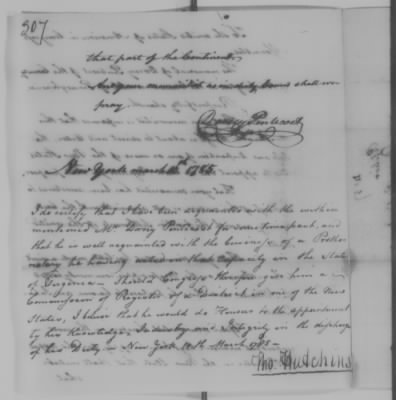 307
that part of the Continent,
And your memorialist as in duty bound shall ever
pray
Dorsey Pentecost
New York March 1785
I do certify that I have been acquainted with the within
mentioned Mr. Dorsey Pentecost for some time past, and
that he is well acquainted with the business of a Prothon
notary he having acted in that Capacity in the State
of Should Congress therefore give him a
Commission of Register of a District in one of the New
States, I know that he would do Honour to the appointment
by his Knowledge, Industry and Integrity in the discharge
of his Duty New York 10th March 1785
Tho. Hutchins